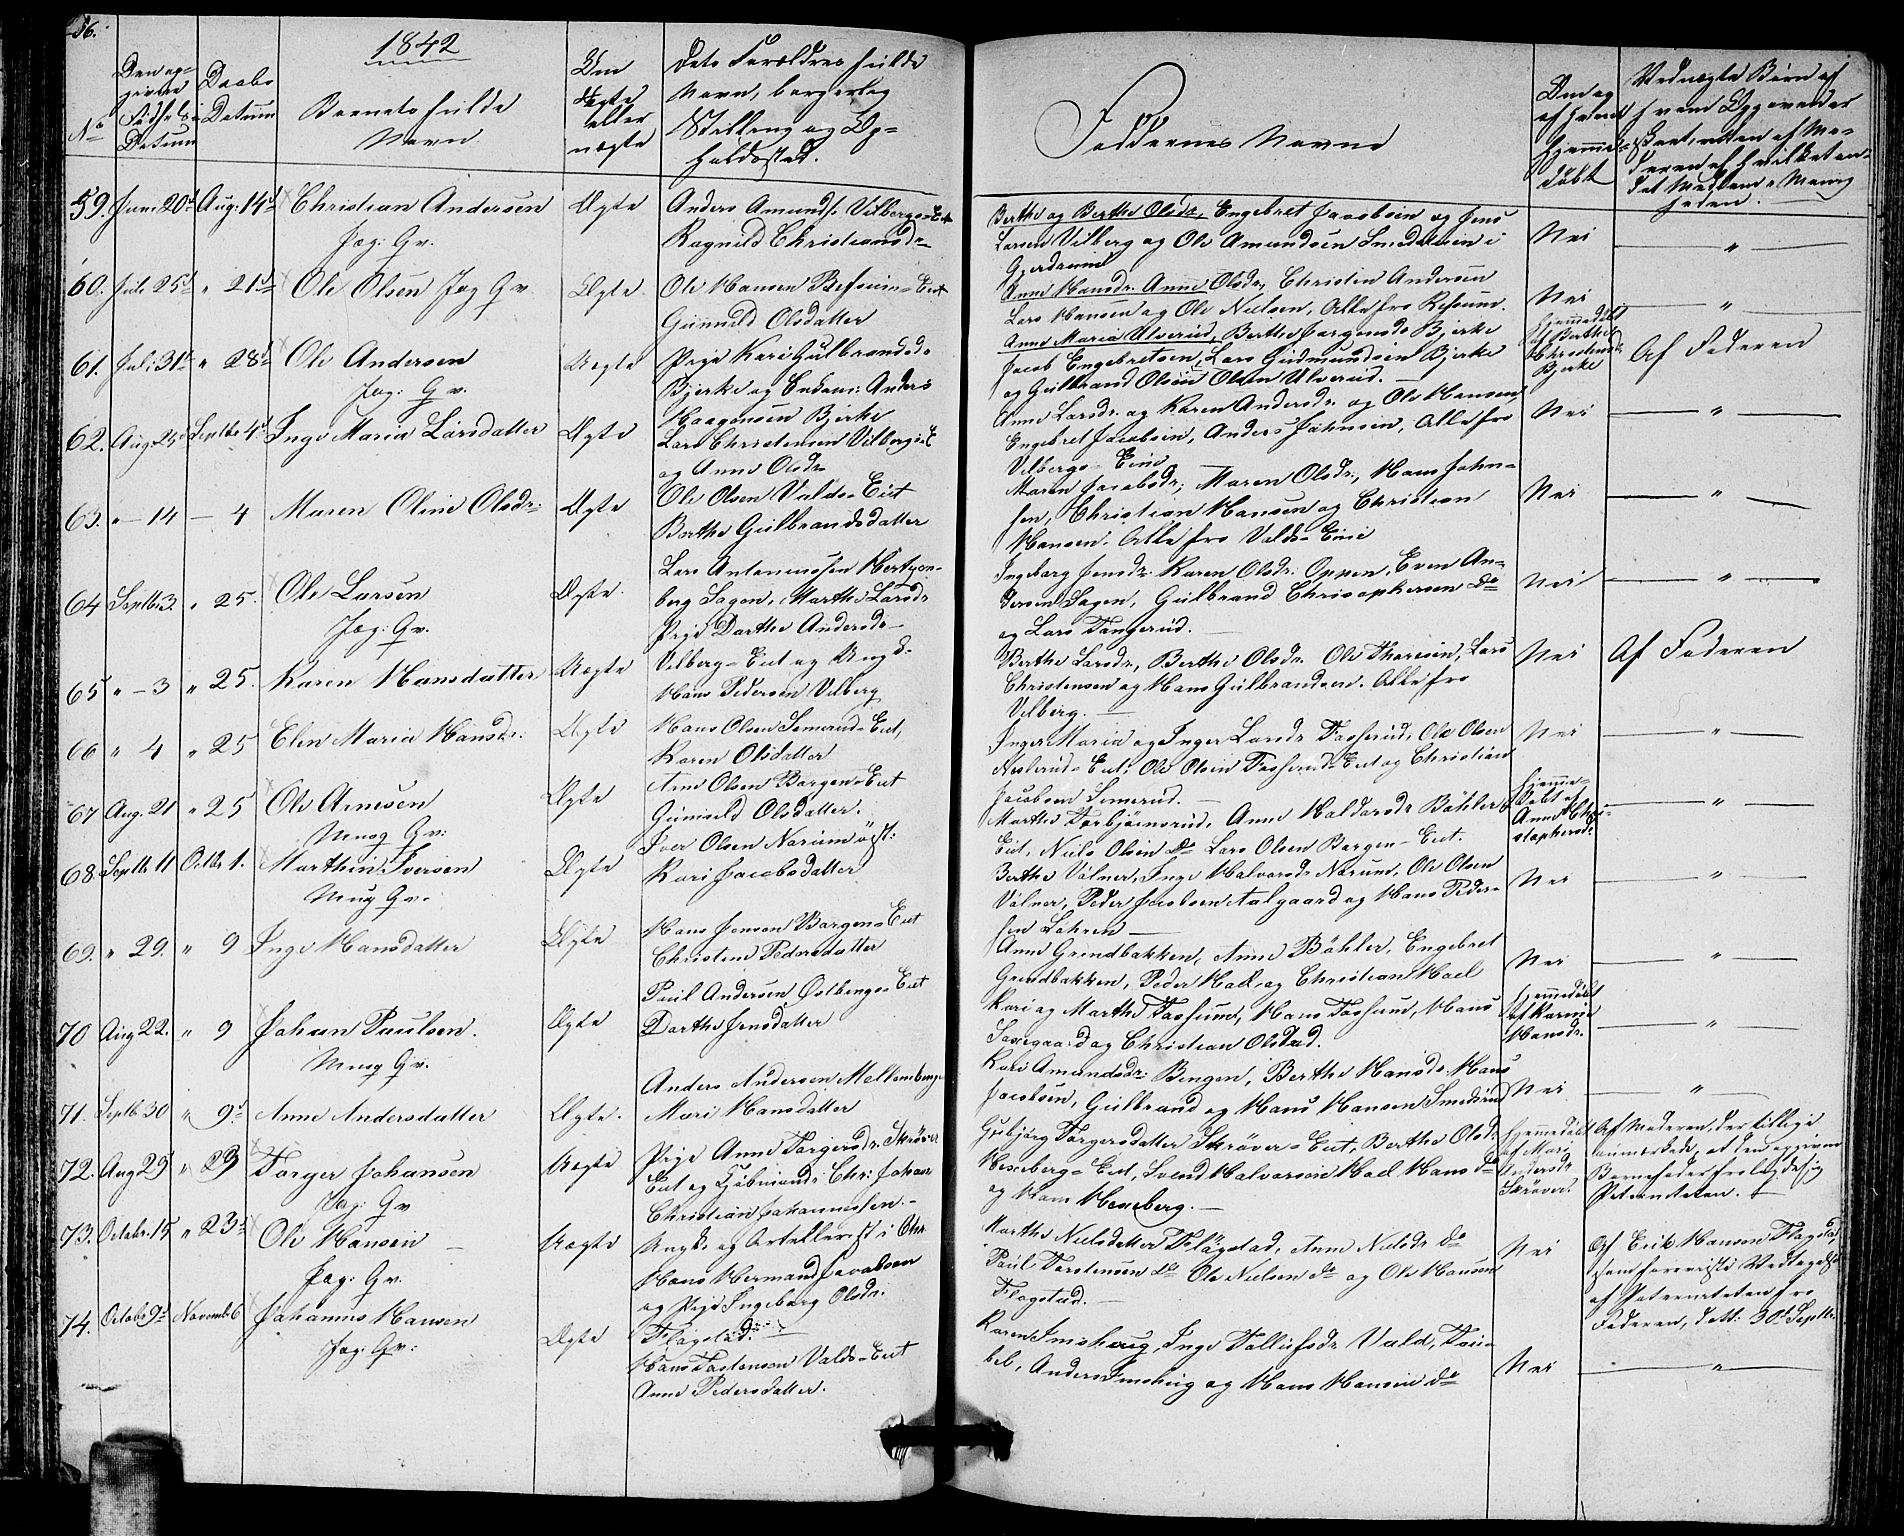 56.
1842
No
Den op-
givne
Fødsels-
Datum
Daabs
Datum
Barnets fulde
Navn.
Om
Ægte
eller
uægte
Dets Forældres fulde
Navn, borgerlig
Stilling og Op-
holdssted.
Faddernes Navne
Om og
af hvem
hjemme-
døbt
Ved uægte Børn af
hvem Opgivendet
skeet, enten af Mo-
deren af hvilket an-
det Medlem af Menig
heden.
59. Juni 20d Aug: 14d Christian Andersen Ægte Anders Amunds. Vilbergs-Eiet
Jag: Gv. Ragnild Christiansdr
Berthe og Berthe Olsdr, Engebret Jacobsen og Jens
Larsen Vilberg og Ole Amundsen Smedstuen i
Gjerdrum
Nei "
60. Juli 25d " 21d Ole Olsen Jag Gv Ægte Ole Hansen Refsum-Eiet
Gunnild Olsdatter
Anne Hansdr. Anne Olsdr, Christen Andersen
Lars Hansen og Ole Nielsen, Alle fra Refsum.
Nei "
61. Juli 31te " 28d Ole Andersen Uægte Pige Kari Gulbrandsd.
Jag: Gv. Bjerke og Enkem: Anders
Haagensen Bjerke
Anne Maria Ulverud, Berthe Jørgensdr Bjerke
Jacob Engebretsen, Lars Gudmundsen Bjerke
og Gulbrand Olsen Olsen Ulverud.
hjemmedøbt
af Berthe
Christensd.
Bjerke
Af Faderen
62. Aug. 25d Septbr 4d Inge Maria Larsdatter Ægte Lars Christensen Vilbergs E
og Anne Olsdr
Anne Larsdr. og Karen Andersdr. og Ole Hansen
Engebret Jacobsen, Anders Johnsen, Alle fra
Vilbergs-Eiie
Nei "
63. " - 14 - 4 Maren Oline Olsdr Ægte Ole Olsen Valds-Eiet
Berthe Gulbrandsdatter
Maren Jacobsdr, Maren Olsdr, Hans John-
sen, Christian Hansen og Christian
Hansen. Alle fra Valds-Eiie
Nei "
64 Septbr 3. " 25. Ole Larsen Ægte. Lars Antoniussen Hertzon-
Jag: Gv. berg Sagen, Marthe Larsdr
Ingeborg Jensdr. Karen Olsdr. Oppen, Even An-
dersen Sagen, Gulbrand Christophersen do
og Lars Tangerud.
Nei "
65 " - 3 " 25. Karen Hansdatter Uægte Pige Dorthe Andersdr
Vilberg-Eiet og Ungk.
Hans Pedersen Vilberg
Berthe Larsdr, Berthe Olsdr. Ole Thoresen, Lars
Christensen og Hans Gulbrandsen. Alle fra
Vilberg.
Nei Af Faderen
66 " 4 " 25 Elen Maria Hansdr. Ægte Hans Olsen Semerud-Eiet,
Karen Olsdatter
Inger Maria og Inger Larsdr Fosserud, Ole Olsen
Neslerud-Eiet, Ole Olsen Fosserud-Eiet og Christian
Jacobsen Semerud.
Nei "
67 Aug. 21 " 25 Ole Arnesen Ægte Arne Olsen Borgen-Eiet
Musg Gv: Gunnild Olsdatter.
Marthe Torbjørnsrud, Anne Haldorsdr Bøhler
Eiet, Niels Olsen do Lars Olsen Borgen-Eiet.
hjemme-
døbt af
Anne Chri-
stophersdr
"
68. Septbr 11 Octbr 1. Marthin Iversen Ægte Iver Olsen Norum
Musg Gv. Kari Jacobsdatter
Berthe Vølner, Inge Halvorsdr Norum, Ole Olsen
Vølner, Peder Jacobsen Aalgaard og Hans Peder-
sen Løhren
Nei "
69. " 29. " 9 Inge Hansdatter Ægte Hans Jensen Borgens-Eiet
Christine Pedersdatter
Anne Grindbakken, Anne Bøhler, Engebret
Grindbakken, Peder Hael og Christian Hael
Nei "
70 Aug 22. " 9 Johan Paulsen. Ægte Paul Andersen Østbenge-Eiet
Musg Gv. Dorthe Jensdatter
Kari og Marthe Fossum, Hans Fossum, Hans
Saxegaard og Christian Olstad.
hjemmedøbt
af Karine
Hansdr.
"
71. Septb 30 " 9d Anne Andersdatter Ægte. Anders Andersen Mellembenge
Mari Hansdatter
Kari Amundsdr. Bengen, Berthe Hansdr. Hans
Jacobsen, Gulbrand og Hans Hansen Smedsrud
Nei "
72. Aug 25 " 23 Torger Johansen Uægte Pige Anne Torgersdr. Skrøver
Jag: Gv Eiet og Kjøbmand i Chr: Johan
Christian Johannessen.
Gubjørg Torgersdatter Skrøver-Eiet, Berthe Olsdr
Hexeberg-Eiet, Svend Halvorsen Hael Hans do
og Hans Hexeberg.
hjemmedøbt
af Mari
Andersdr
Skrøver.
Af Moderen, der tillige
anmærkede, at den opgivne
Barnefader fralagde sig
Paterniteten.
73. Octobr. 15 " 23d Ole Hansen Uægte Ungk. og Artellerist i Chr.
Jag: Gv. Hans Herman Jacobsen
og Pige Ingeborg Olsdr.
Flagstad.
Marthe Nielsdatter Flagstad, Anne Nielsdr do
Paul Torstensen do Ole Nielsen do og Ole Hansen
Flagstad.
Nei
Af Erik Hansen Flagstad,
som foreviste Vedtagelse
af Paterniteten fra
Faderen, datt: 30d Septbr.
74. Octobr 9d Novembr 6 Johannes Hansen Ægte Hans Tostensen Valds-Eiet
Jag: Gv: Anne Pedersdatter.
Karen Imshaug, Inge Tollefsdr Vald,
Anders Imshaug og Hans Hansen do
Nei "